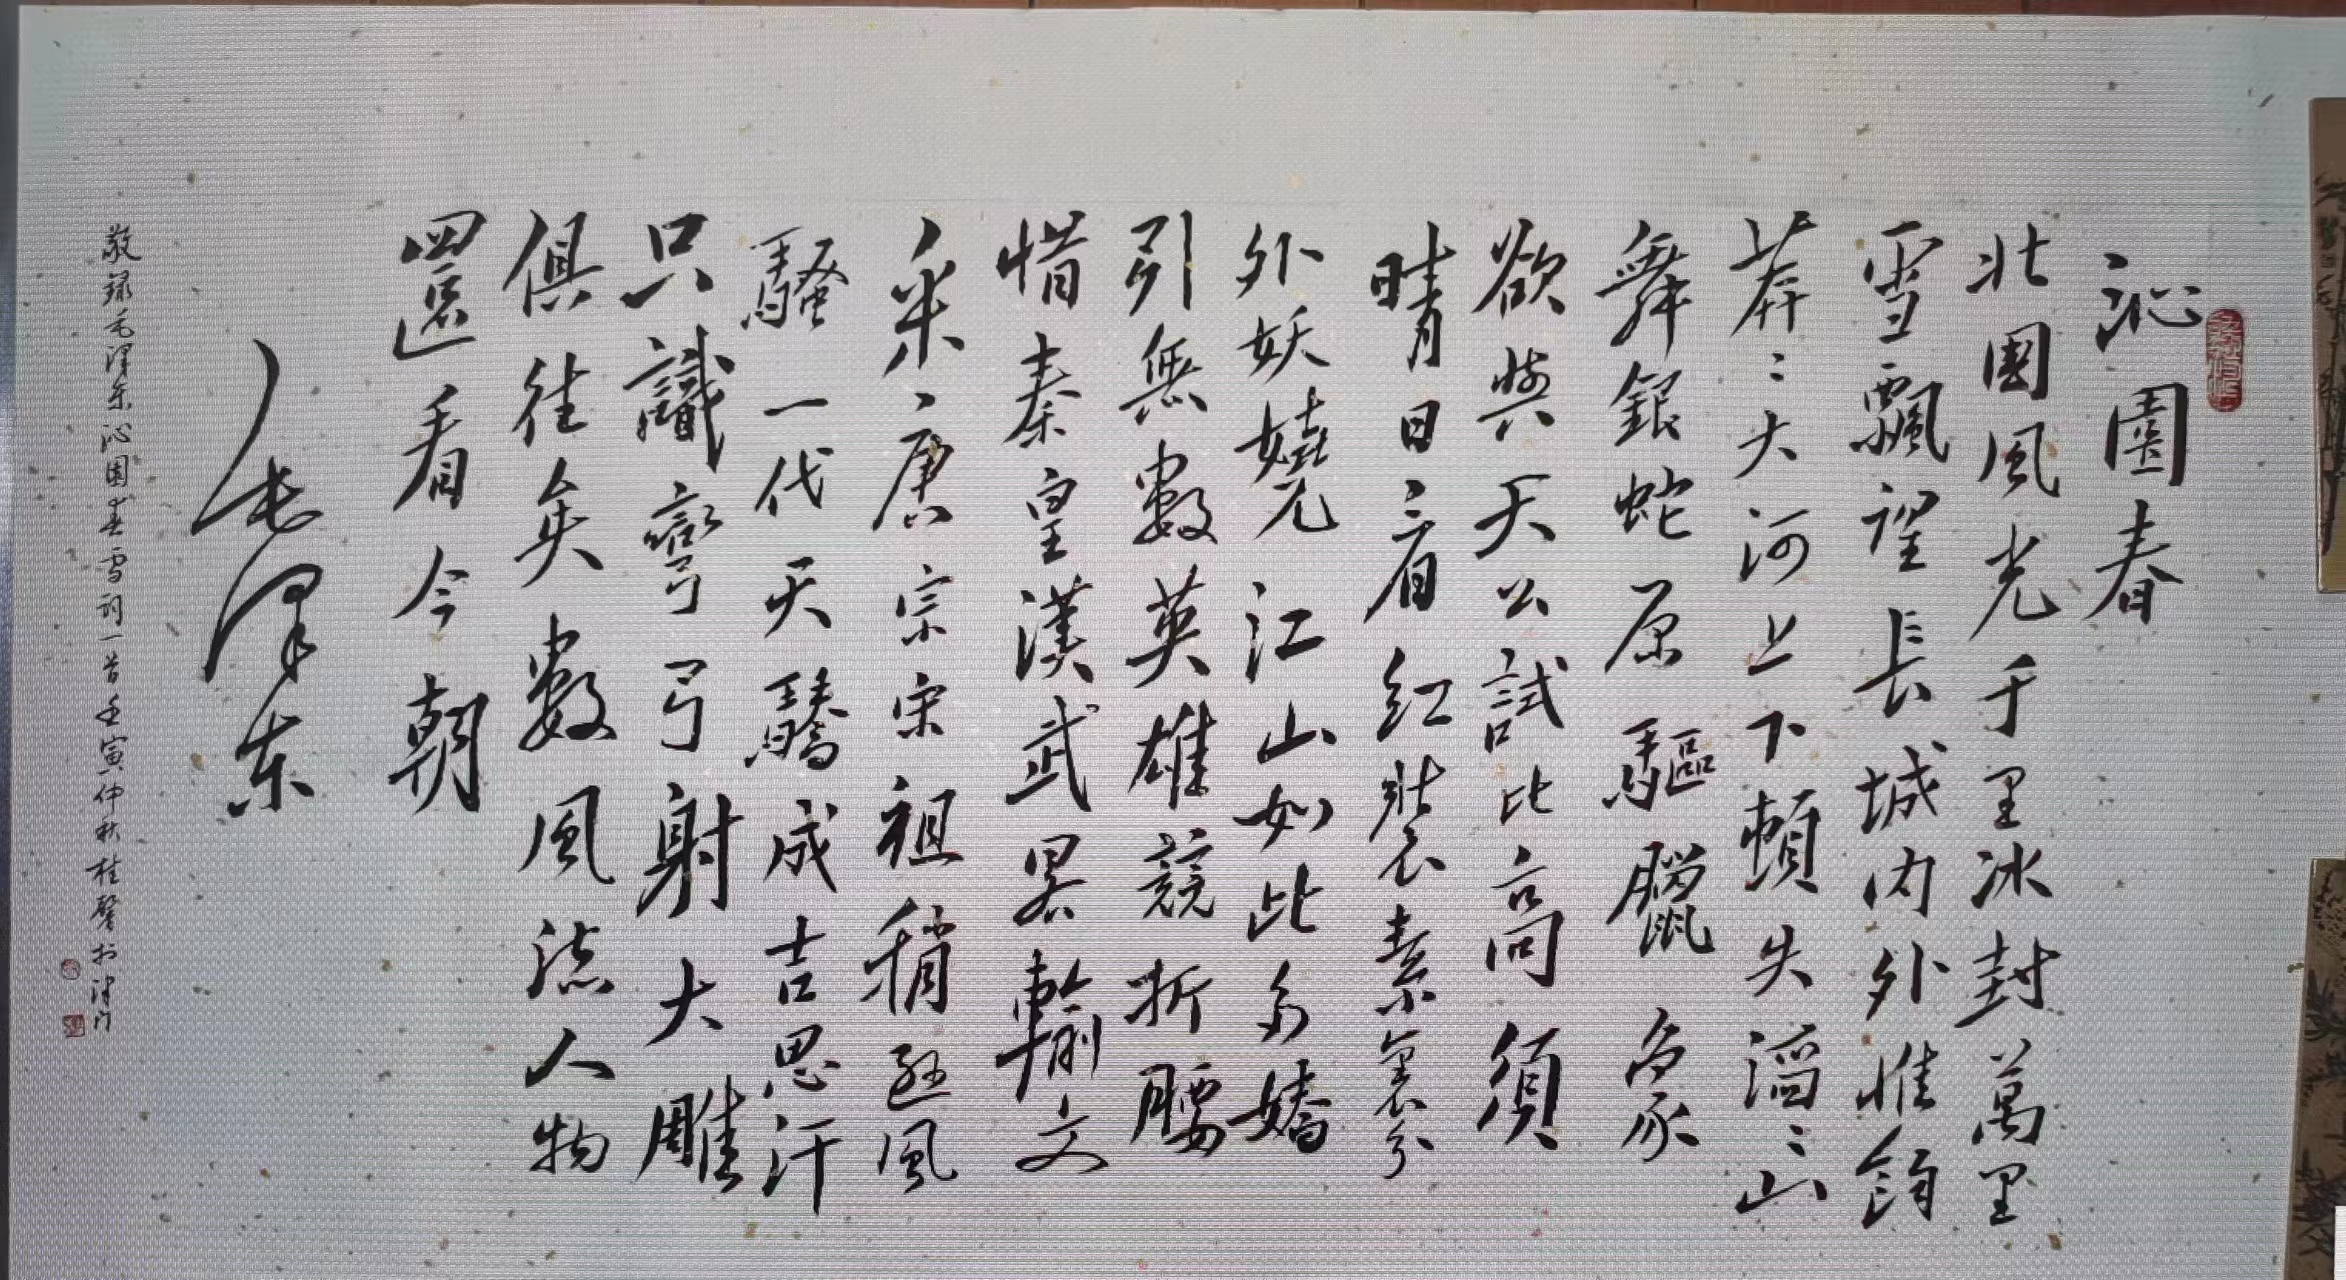 沁園春
北國風光千里冰封萬里
雪飄望長城内外惟餘
莽〻大河上下頓失滔〻山
舞銀蛇原驅臘象
欲與天公試比高須
晴日看紅裝素裹分
外妖嬈江山如此多嬌
引無數英雄競折腰
惜秦皇漢武畧輸文
采唐宗宋祖稍遜風
騷一代天驕成吉思汗
只識彎弓射大雕
俱往矣數風流人物
還看今朝
毛澤东
敬録毛澤东沁園春雪詞一首壬寅仲秋桂馨於津门